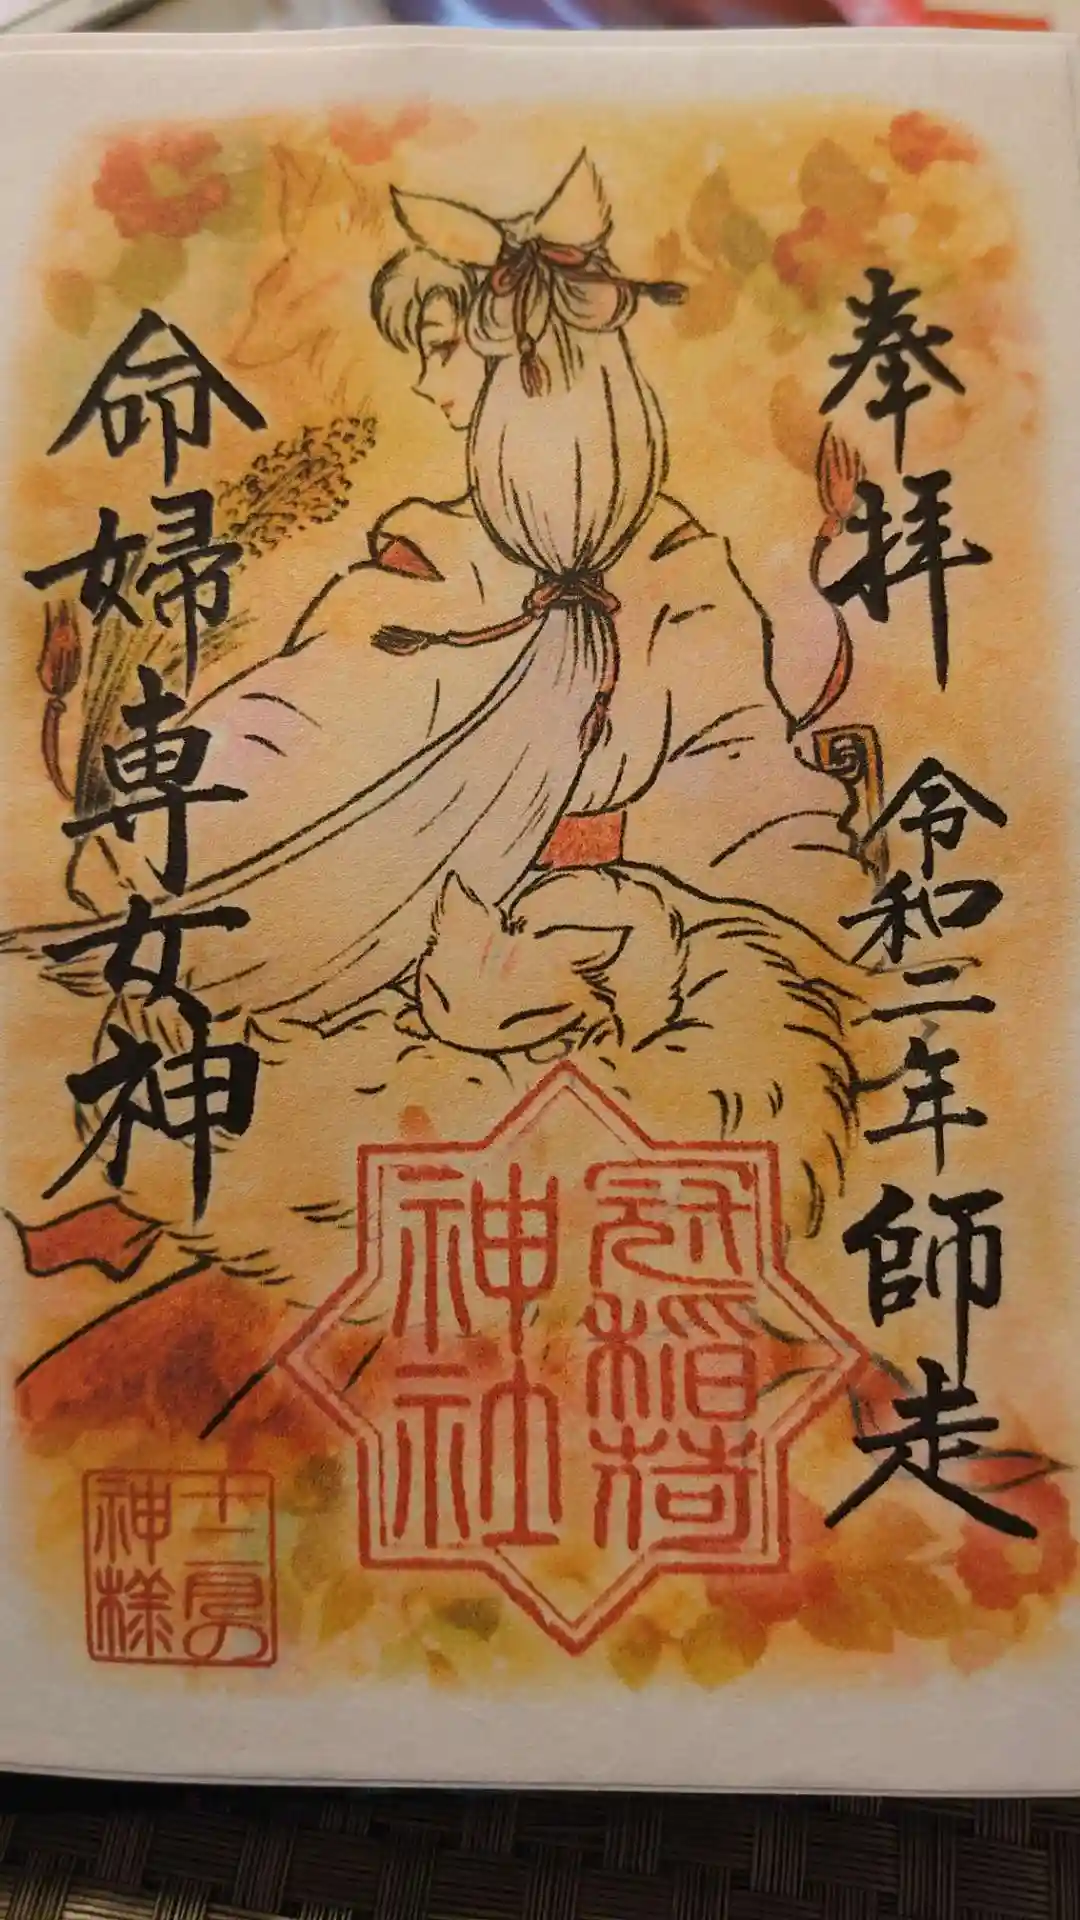 奉拝
令和二年師走
命婦専女神
冠稲荷
神社
十二月の
神様